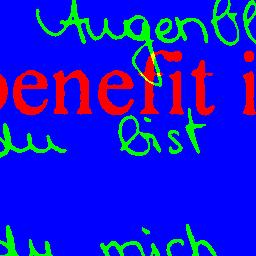 Augenbl
benefit i
du bist
du mich